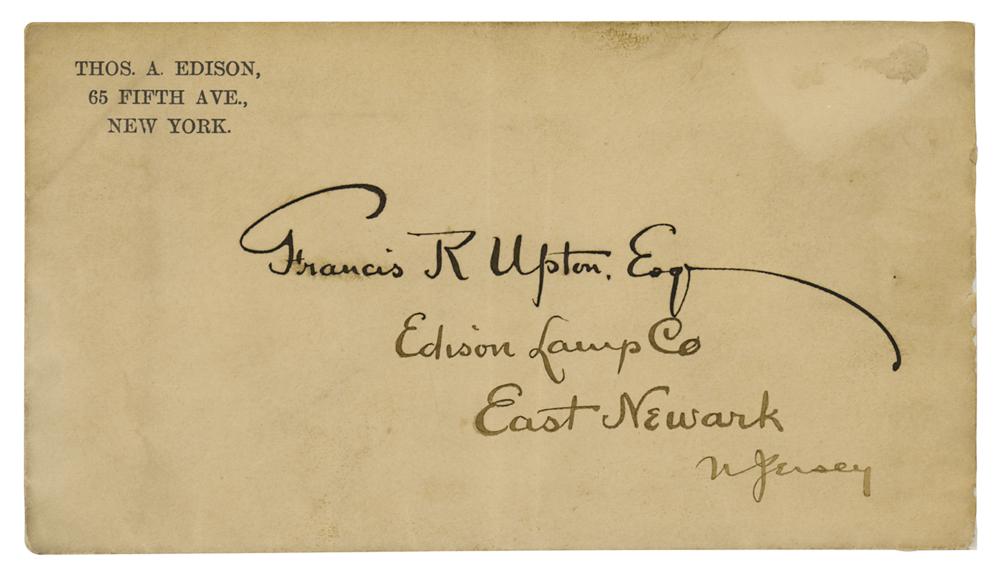 THOS. A. EDISON,
65 FIFTH AVE.,
NEW YORK.
Francis R Upton, Esq
Edison Lamp Co
East Newark
N Jersey